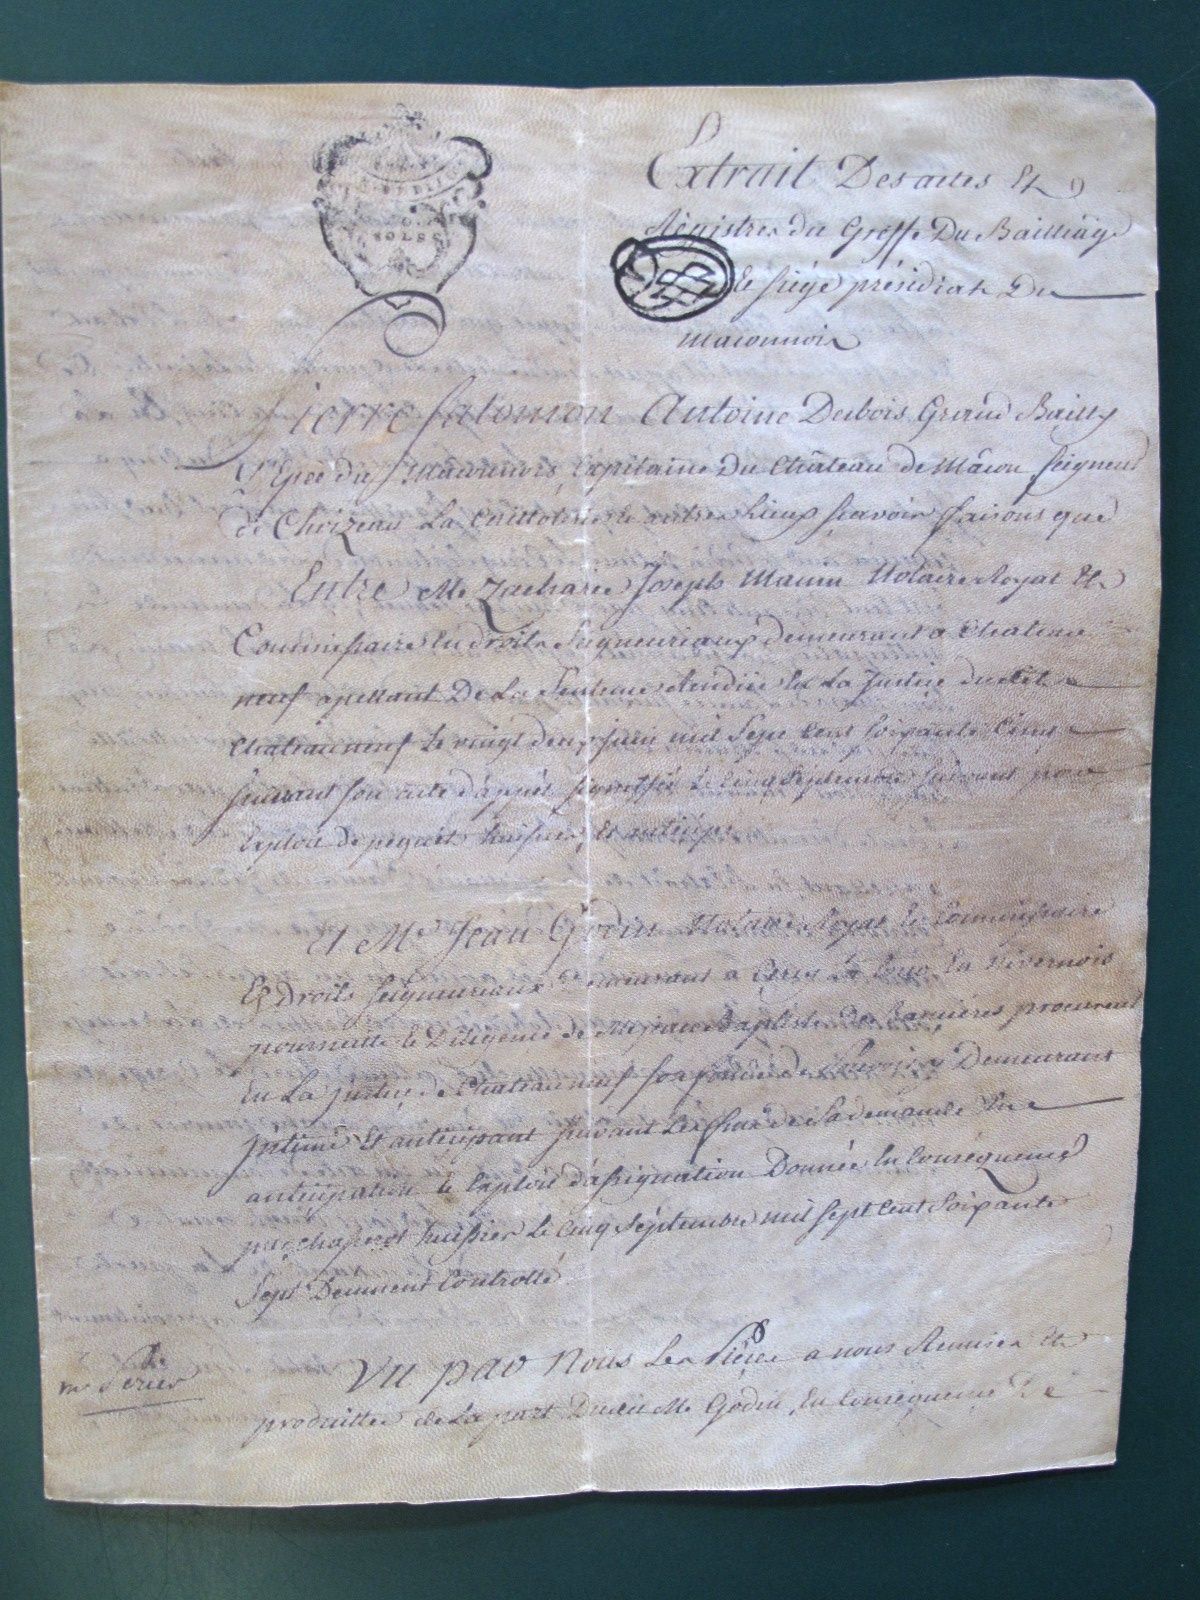 SOLS
Extrait Des actes Et
Régistres du Greffe Du Bailliage
et siége présidial Du
maconnois
Pierre Salomon Antoine Dubois Grand Bailly
D'Epée du Maconnois, Capitaine Du Château de Mâcon, Seigneur
de Choizeau La Cuittoterie et autres Lieux sçavoir faisons que
Entre Me Zacharie Joseph Maum Notaire Royal Et
Commissaire En droits Seigneuriaux demeurant a Chateau
neuf apellant De La Sentence Rendüe En La Justice dudit
Chateauneuf le vingt deux juin mil Sept Cent Soixante Cinq
suivant son acte d'appel signiffié le Cinq Septembre suivant par
Exploit de huissier, Et anticipé
Et Me Jean Godin Notaire Royal Et Commissaire
En Droits Seigneuriaux Demeurant a Cercy La tour En Nivernois
poursuitte et Diligence de Me jean Baptiste des Lamieres procureur
En La justice de Chateauneuf son fondé de Pouvoir y Demeurant
intimé Et anticipant suivant Les fins de Sa demande En
anticipation et Exploit d'assignation Donnée En Conséquence
par Chaperot huissier Le Cinq Séptembre mil sept Cent Soixante
Sept Deument Controllé
Vu par Nous Les Piéces a nous Remises Et
produittes de La part Dudit Me Godin, En Conséquence De